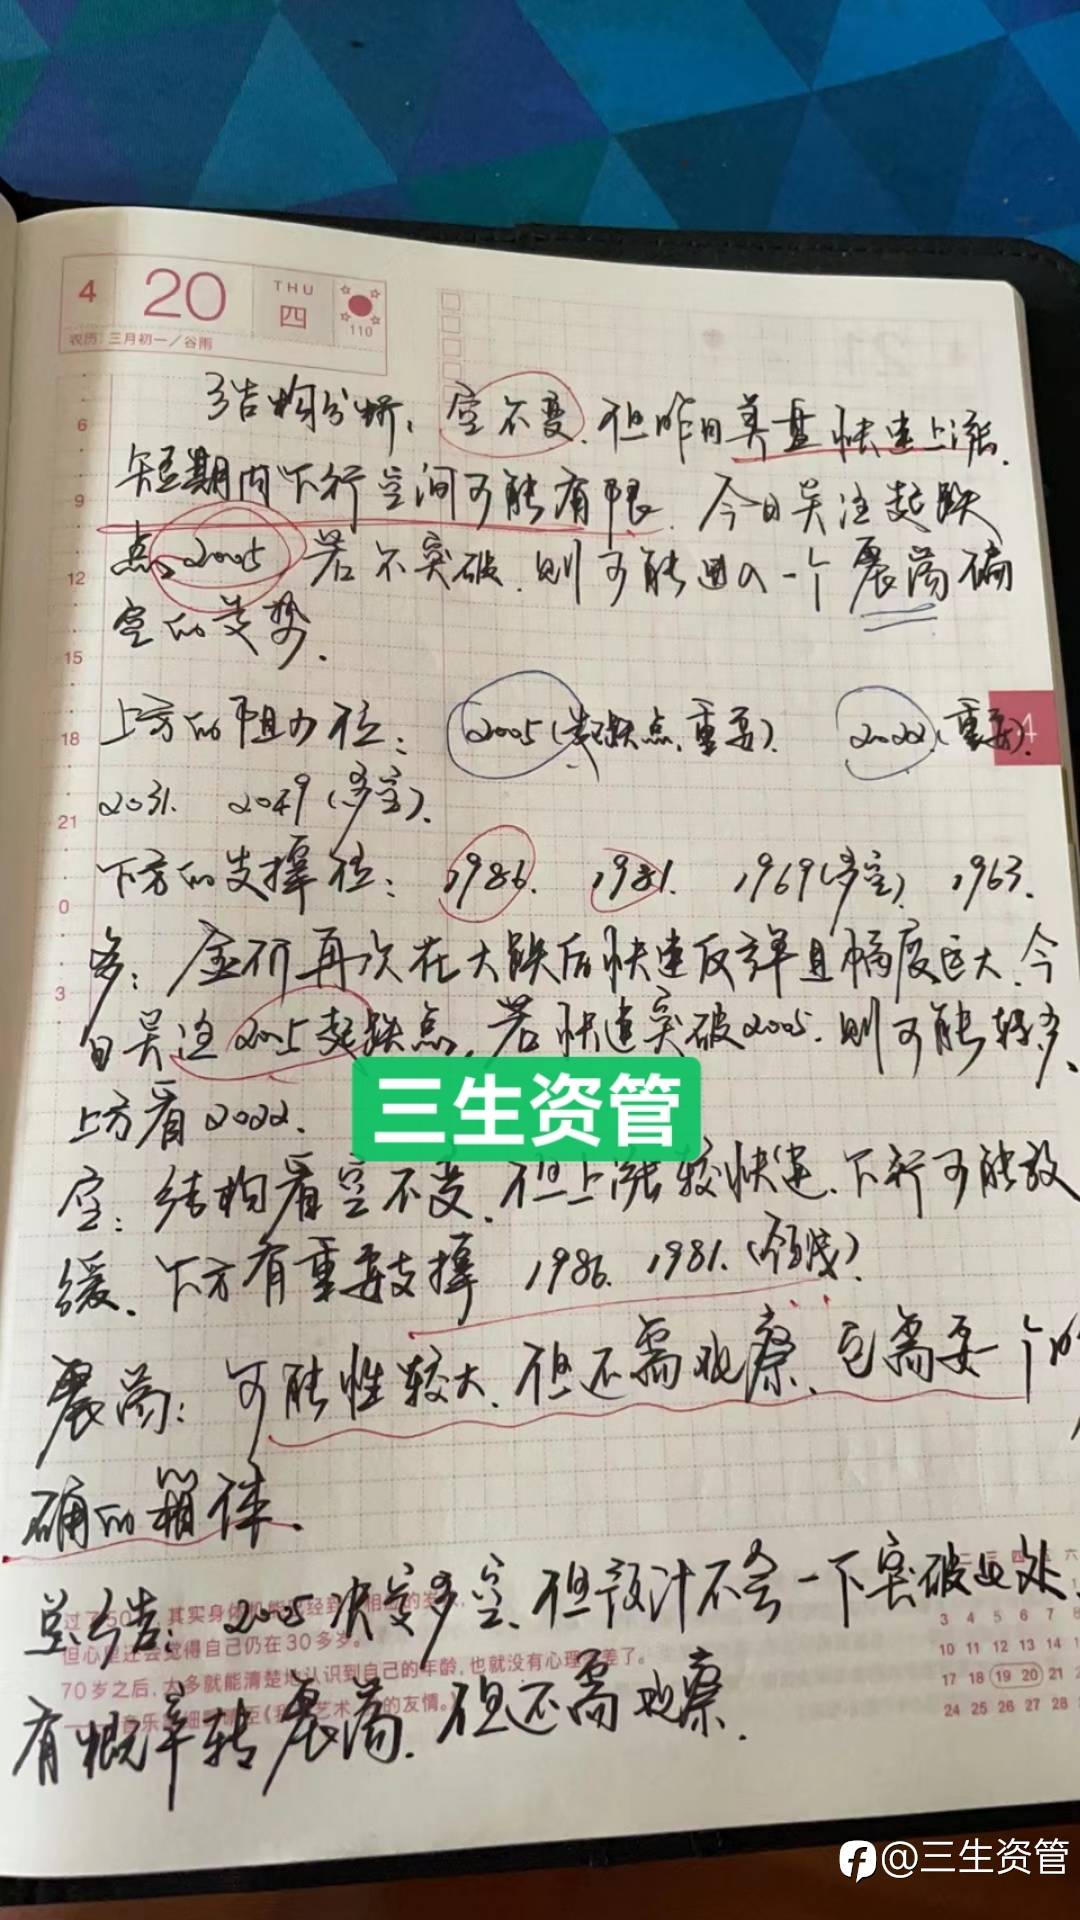 4 20 THU 四 110
农历:三月初一/谷雨
结构分析:空不变.但昨日美盘快速上涨.
6
短期内下行空间可能有限.今日关注起跌
9
点2005 若不突破.则可能进入一个震荡偏
12
空的走势.
15
上方的阻力位: 2005(起跌点.重要). 2022.(重要).
18
4
2031. 2049(多空).
21
下方的支撑位: 1986. 1981. 1969(多空). 1963.
0
多:金价再次在大跌后快速反弹且幅度巨大.今
3
日关注2005起跌点,若快速突破2005.则可能转多、
三生资管
上方看2022.
空:结构看空不变.但上涨较快速.下行可能放
缓.下方有重要支撑 1986. 1981.(颈线).
震荡:可能性较大.但还需观察.它需要一个明
确的箱体.
总结:2005决定多空.但预计不会一下突破此处
有概率转震荡.但还需观察.
但心里还会觉得自己仍在30多岁。
70岁之后,大多就能清楚地认识到自己的年龄,也就没有心理
3 4 5 6 7 8
10 11 12 13 14 15
17 18 19 20 21
24 25 26 27 28
@三生资管